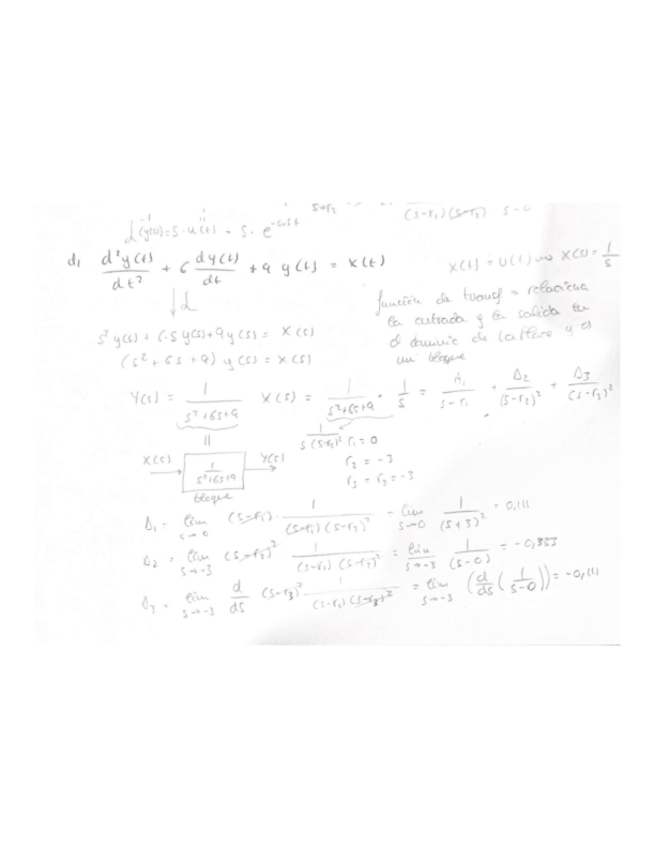 (s-r₁)(s-r₂) s-0
d, d²y(t)/dt² + 6 dy(t)/dt + 9 y(t) = x(t)
x(t) = u(t) → X(s) = 1/s
↓ L
función de transf = relaciona
la entrada y la salida en
el dominio de Laplace y es
un bloque
s² y(s) + 6s y(s) + 9y(s) = X(s)
(s² + 6s + 9) y(s) = X(s)
Y(s) = 1/(s²+6s+9) X(s) = 1/(s²+6s+9) · 1/s = A₁/(s-r₁) + A₂/(s-r₂)² + A₃/(s-r₃)²
1/(s(s-r₂)²) r₁ = 0
r₂ = -3
r₃ = r₂ = -3
X(s) → 1/(s²+6s+9) → Y(s)
bloque
A₁ = lim s→0 (s-r₁) · 1/((s-r₁)(s-r₂)²) = lim s→0 1/(s+3)² = 0,111
A₂ = lim s→-3 (s-r₂)² 1/((s-r₁)(s-r₂)²) = lim s→-3 1/(s-0) = -0,333
A₃ = lim s→-3 d/ds (s-r₃)² 1/((s-r₁)(s-r₃)²) = lim s→-3 (d/ds (1/(s-0))) = -0,111